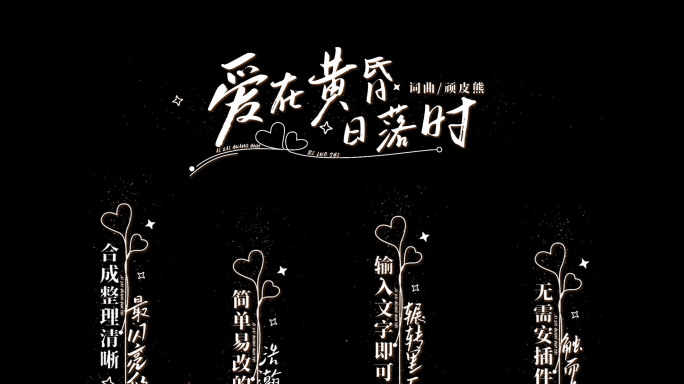 爱在黄昏
日落时
词曲/顽皮熊
AI ZAI HUANG HUN
RI LUO SHI
合成整理清晰
最闪亮的
简单易改的
浩瀚
输入文字即可
辗转里
无需安插件
触而